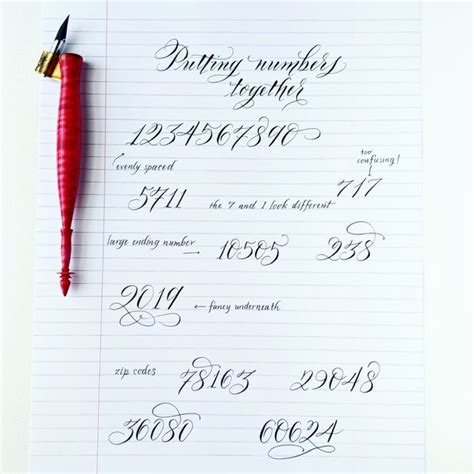 Putting numbers
together
1234567890
evenly spaced
too
confusing!
5711
the 7 and 1 look different
717
large ending number
10505
238
2019
fancy underneath
zip codes
78163
29048
36080
60624